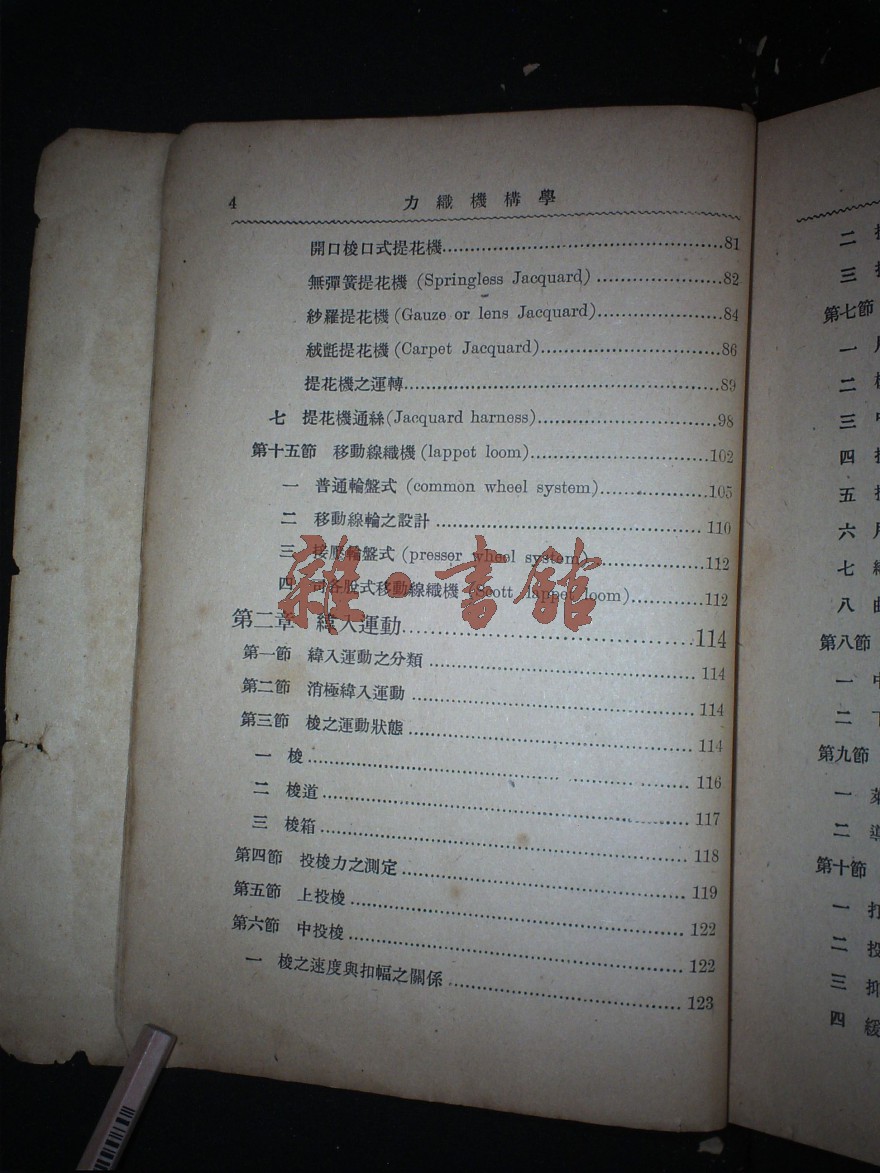 4 力織機構學
開口梭口式提花機 81
無彈簧提花機 (Springless Jacquard) 82
紗羅提花機 (Gauze or lens Jacquard) 84
絨氈提花機 (Carpet Jacquard) 86
提花機之運轉 89
七 提花機通絲 (Jacquard harness) 98
第十五節 移動線織機 (lappet loom) 102
一 普通輪盤式 (common wheel system) 105
二 移動線輪之設計 110
三 接壓輪盤式 (presser wheel system) 112
四 司各脫式移動線織機 (Scott lappet loom) 112
第二章 緯入運動 114
第一節 緯入運動之分類 114
第二節 消極緯入運動 114
第三節 梭之運動狀態 114
一 梭 116
二 梭道 117
三 梭箱 118
第四節 投梭力之測定 119
第五節 上投梭 122
第六節 中投梭 122
一 梭之速度與扣幅之關係 123
雜·書館
二
三
第七節
一
二
三
四
五
六
七
八
第八節
一
二
第九節
一
二
第十節
一
二
三
四